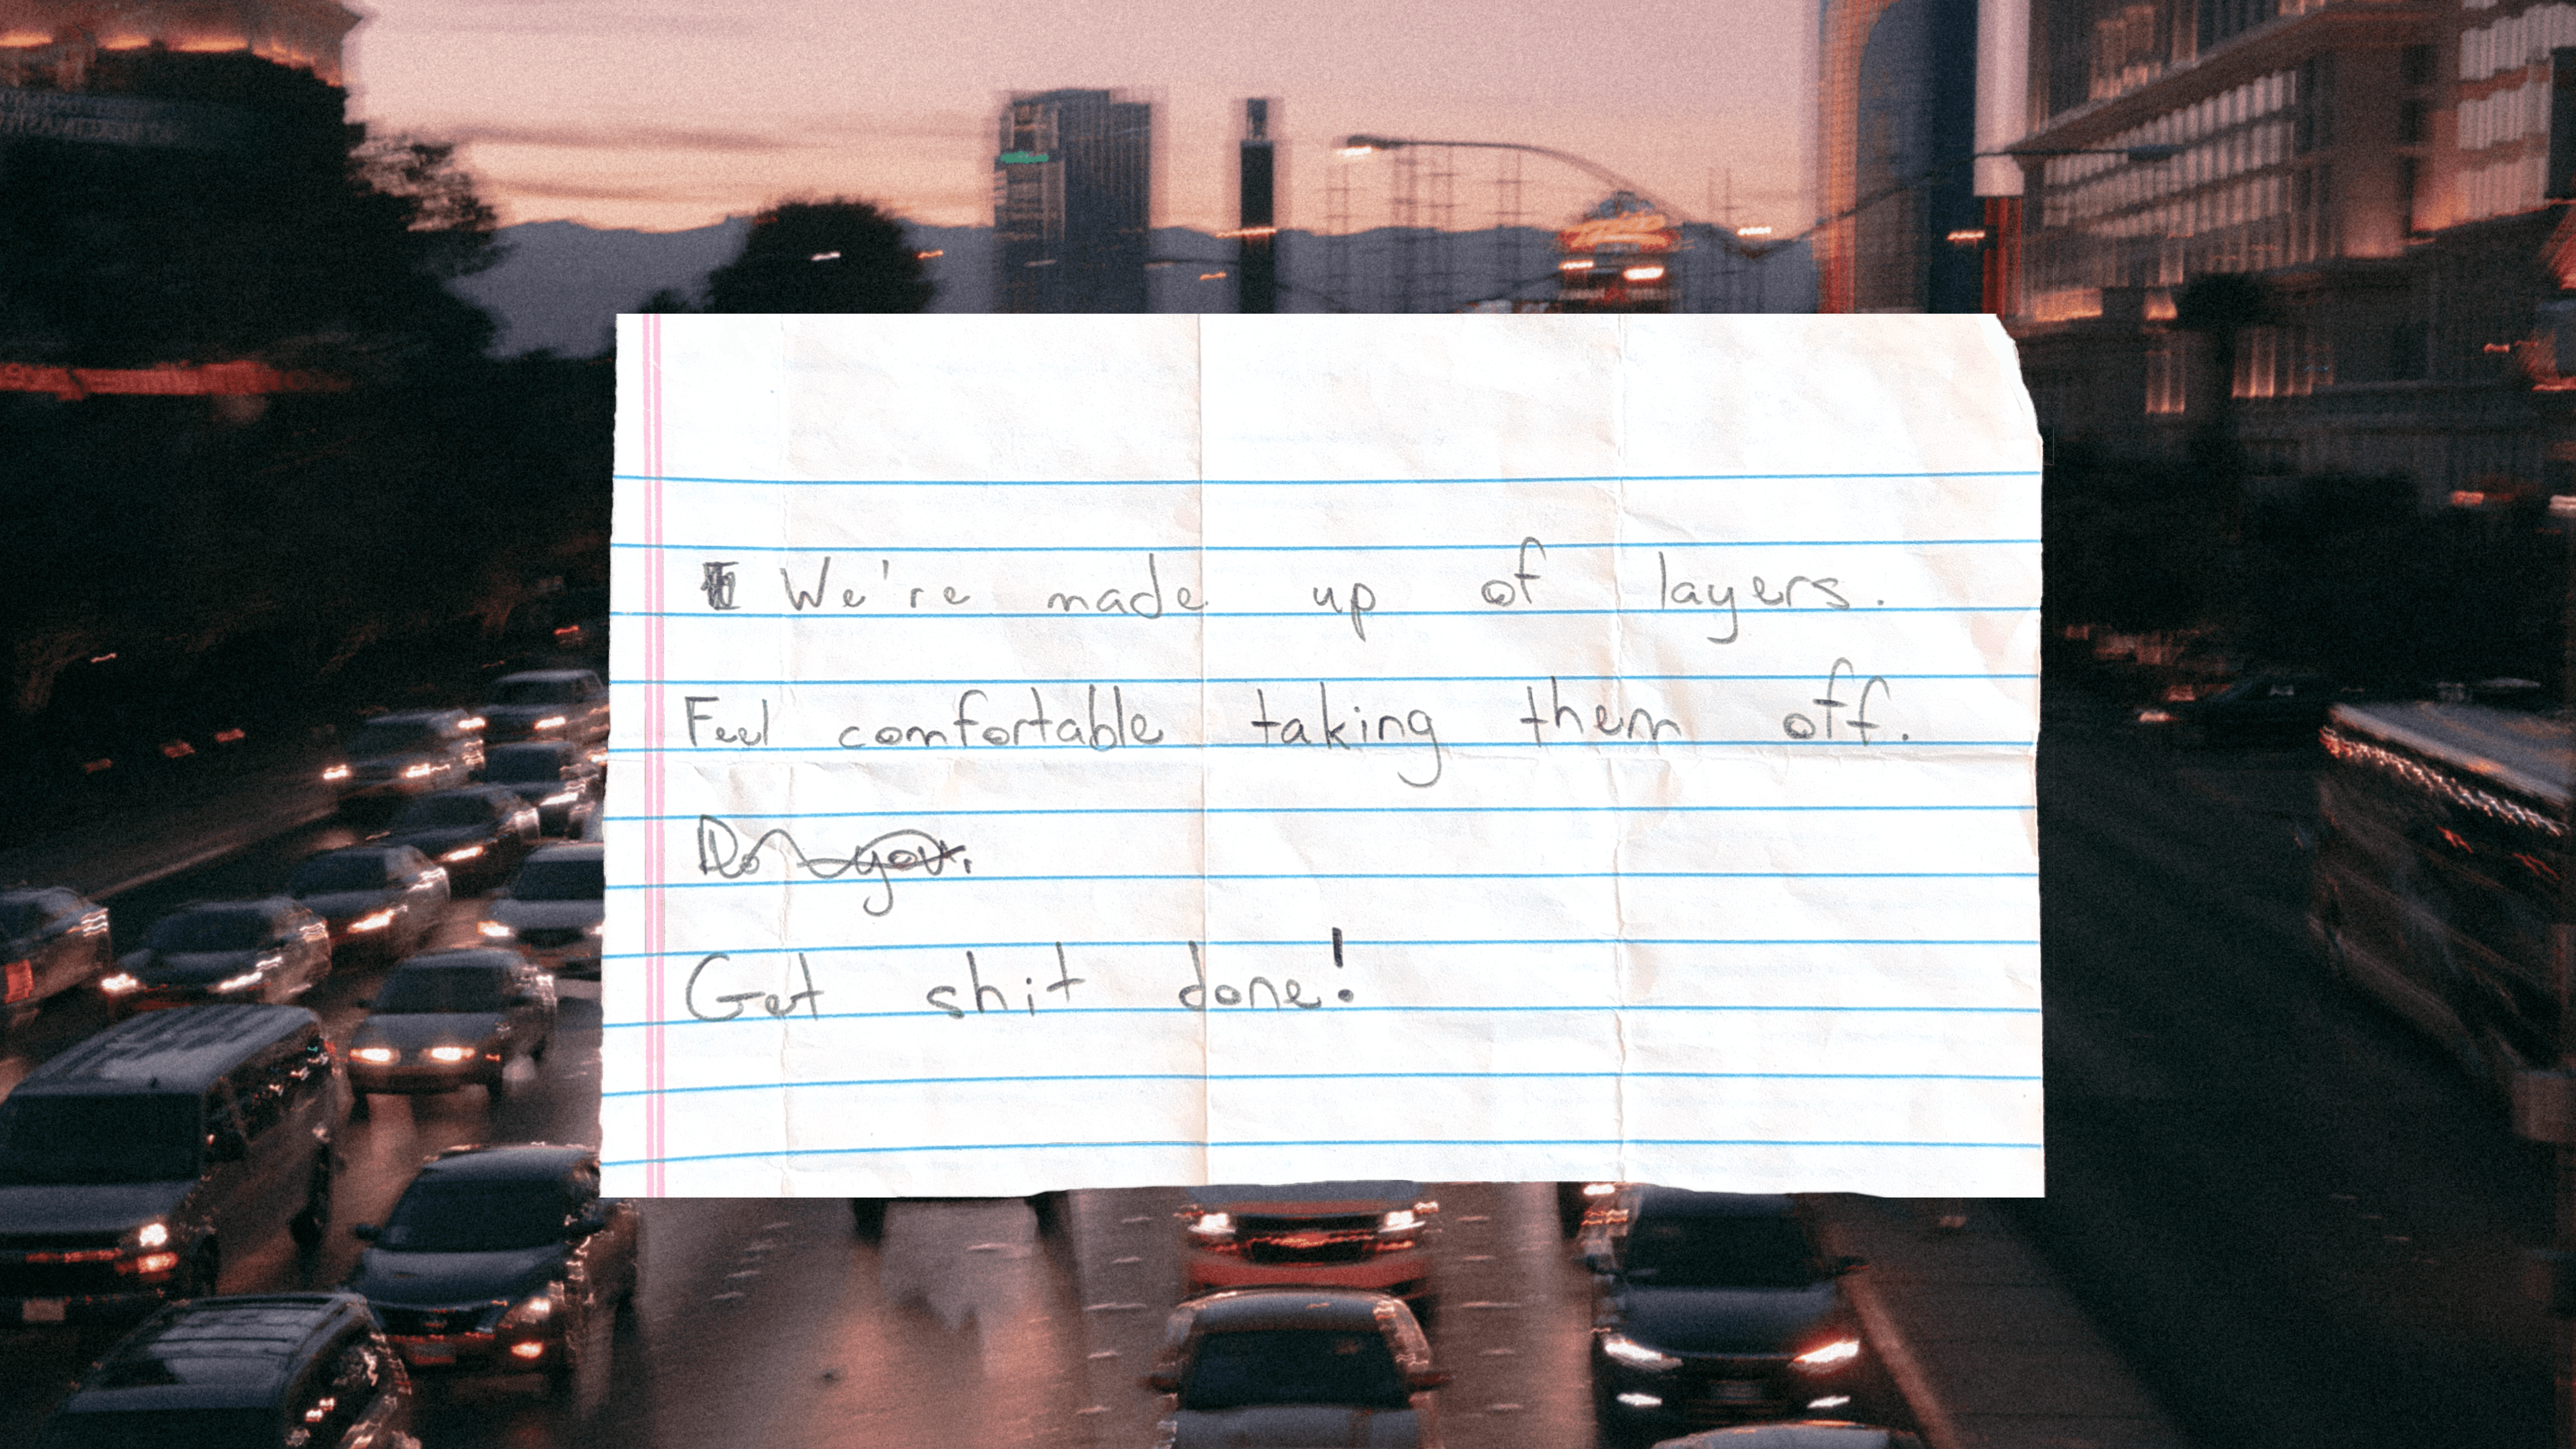 We're made up of layers.
Feel comfortable taking them off.
Do you.
Get shit done!